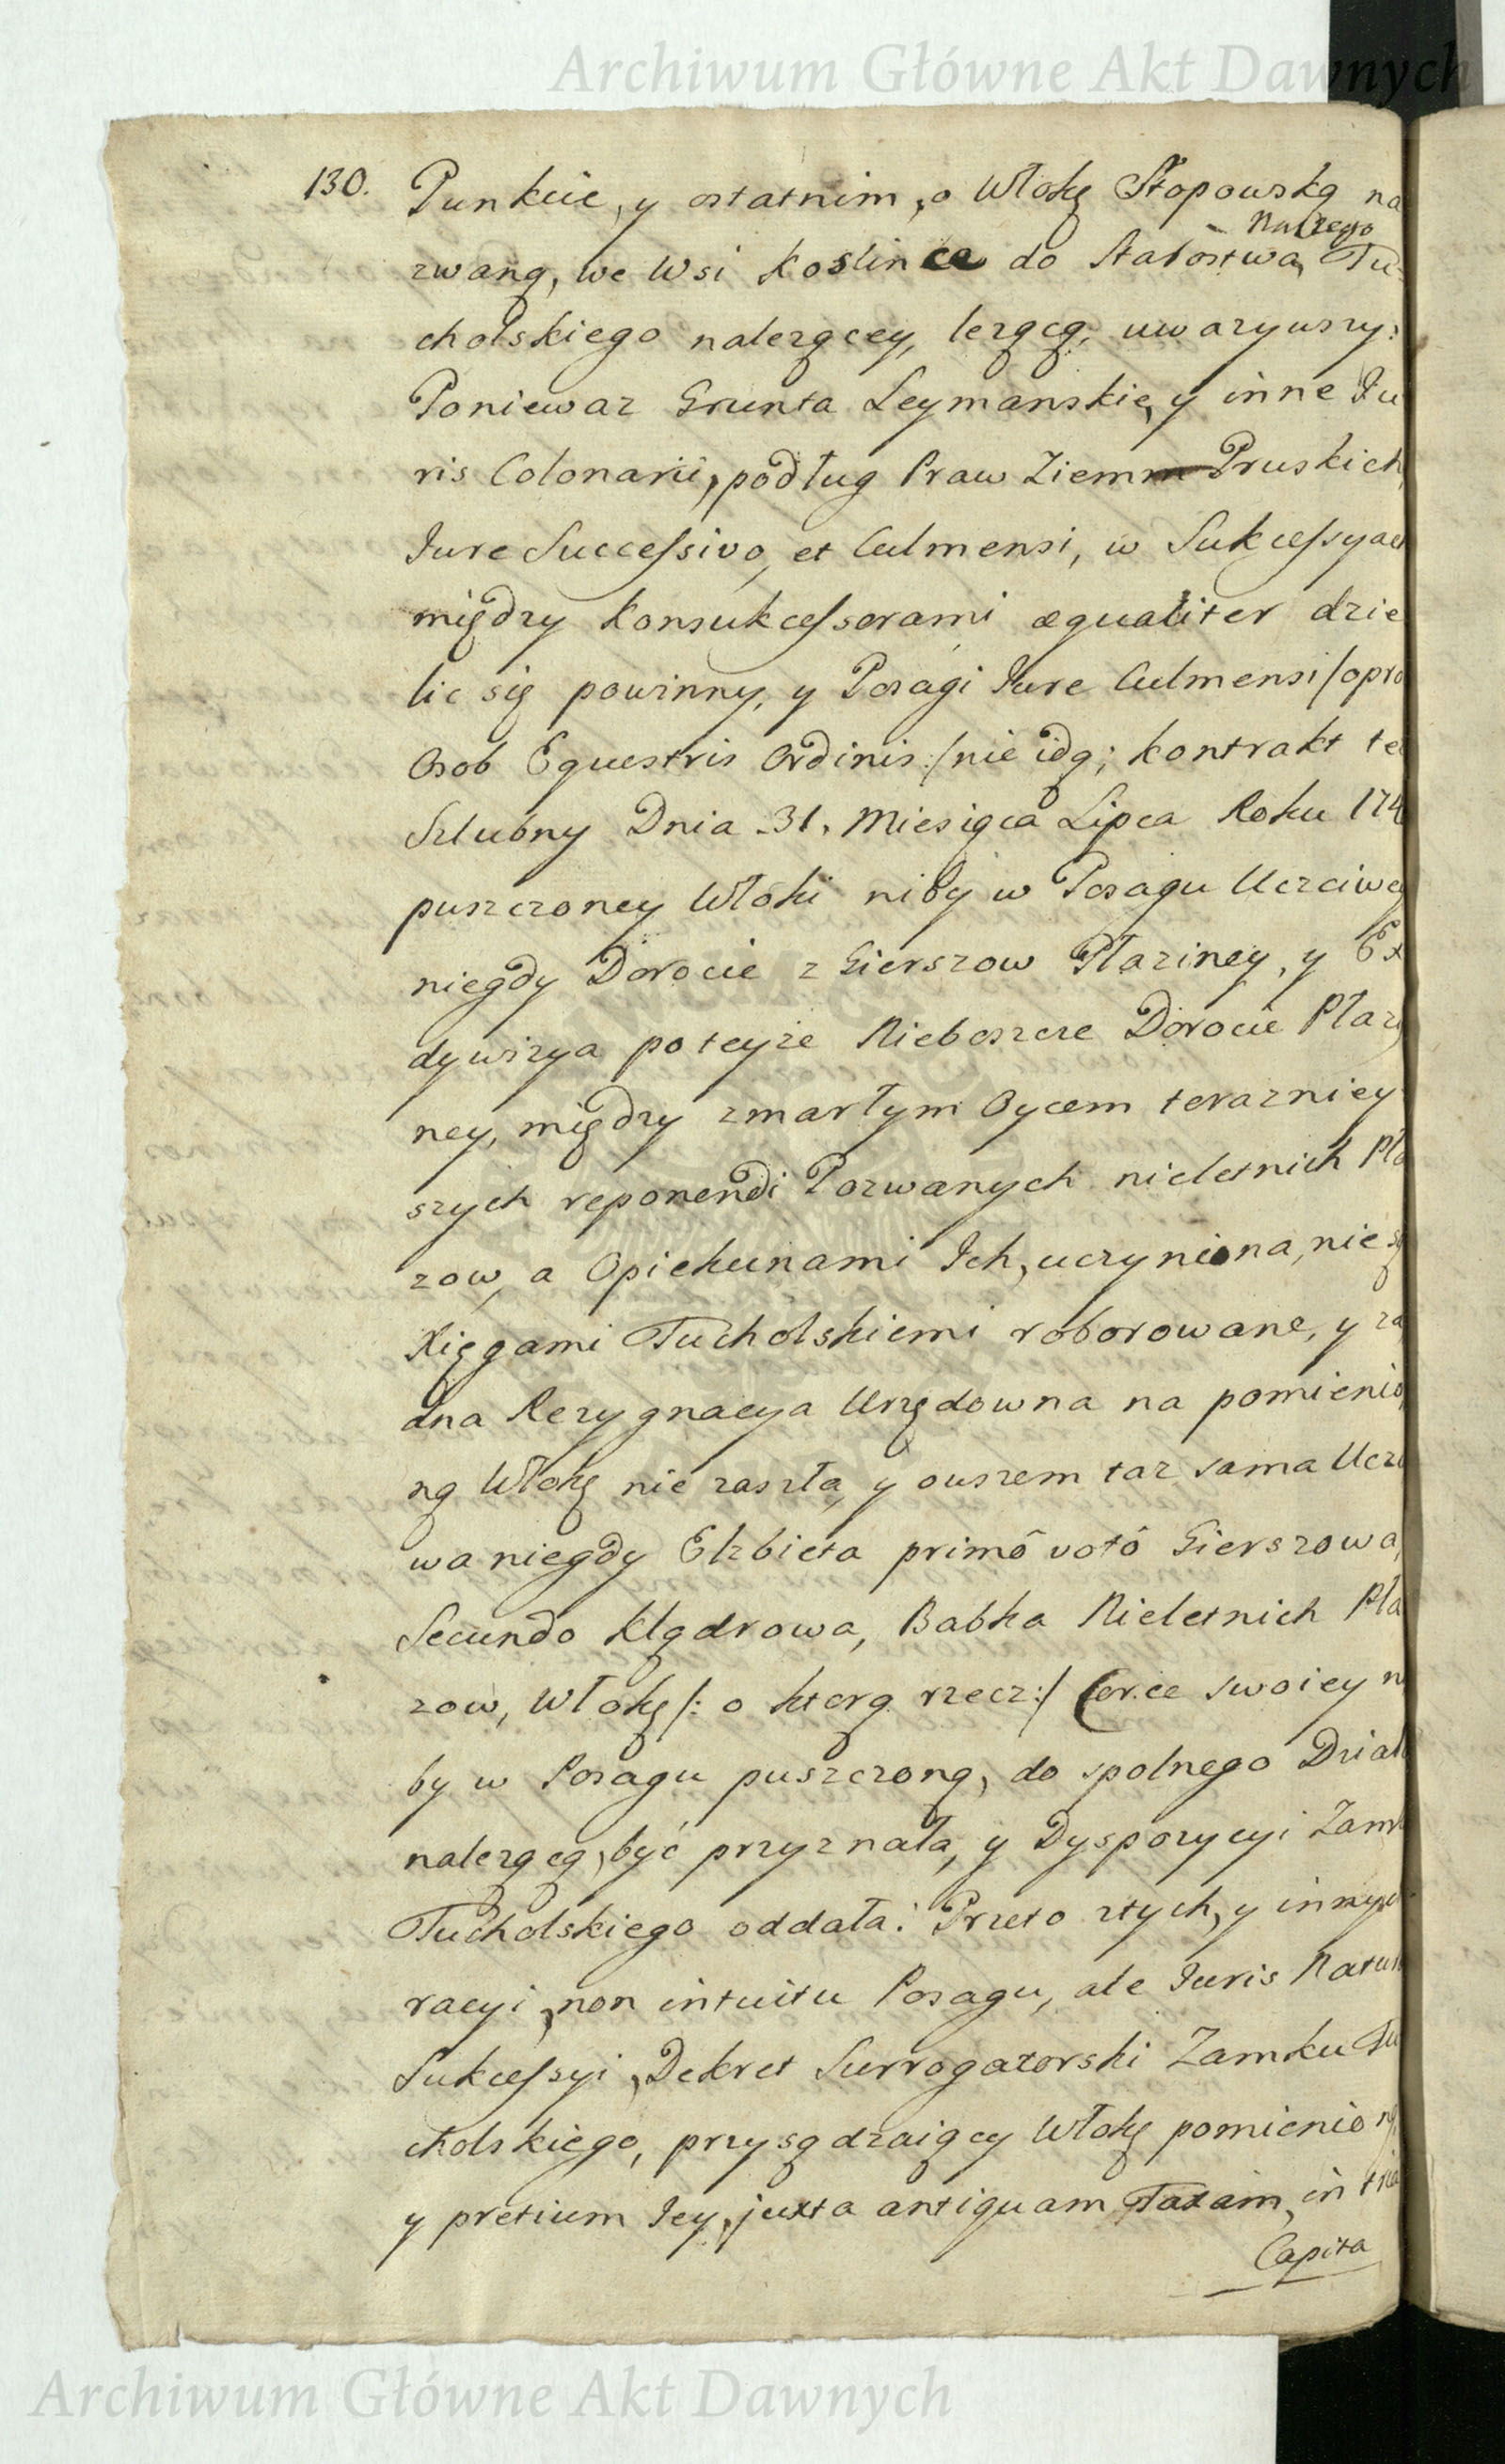 Archiwum Główne Akt Dawnych
130.
Punkcie, y ostatnim, o Włokę Stopowską na
Naszego
zwaną, we Wsi Koslince do Starostwa Tu-
cholskiego nalezącey, lezącą, uwazywszy:
Poniewaz Grunta Leymanskie, y inne Ju
ris Colonarii, podług Praw Ziemm Pruskich
Jure Successivo, et Culmensi, w Sukcessyach
między Konsukcessorami æqualiter dzie
lic się powinny, y Posagi Jure Culmensi /opro
Osob Equestris Ordinis:/ nie idą; kontrakt te
Szlubny Dnia 31. Miesiąca Lipca Roku 174
puszczoney Włoki niby w Posagu Uczciwey
niegdy Dorocie z Gierszow Płaziney, y Ex
dywizya po teyże Nieboszcze Dorocie Płazi
ney, między zmarłym Oycem terazniey
szych reponendi Pozwanych nieletnich Pła
zow, a Opiekunami Ich, uczyniona, nie są
Xięgami Tucholskiemi roborowane, y za
dna Rezygnacya Urzędowna na pomienio
ną Włokę nie zaszła, y owszem taz sama Uczci
wa niegdy Elzbieta primô votô Gierszowa,
Secundo Klądrowa, Babka Nieletnich Pła
zow, Włokę /: o ktorą rzecz:/ Corce swoiey ni
by w Posagu puszczoną, do spolnego Dział
nalezącą być przyznała, y Dyspozycyi Zamk
Tucholskiego oddała: Przeto z tych, y innych
racyi, non intuitu Posagu, ale Juris Natur
Sukcessyi, Dekret Surrogatorski Zamku Tu
cholskiego, przysądzaiący Włokę pomienioną
y pretium Jey, juxta antiquam Taxam, in tria
Capita
Archiwum Główne Akt Dawnych